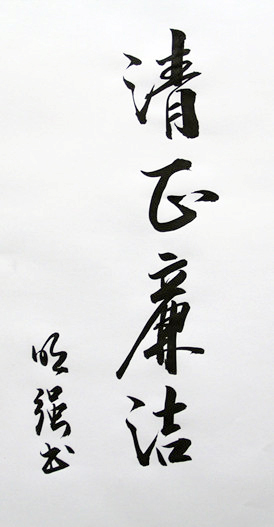 清正廉洁
明强书